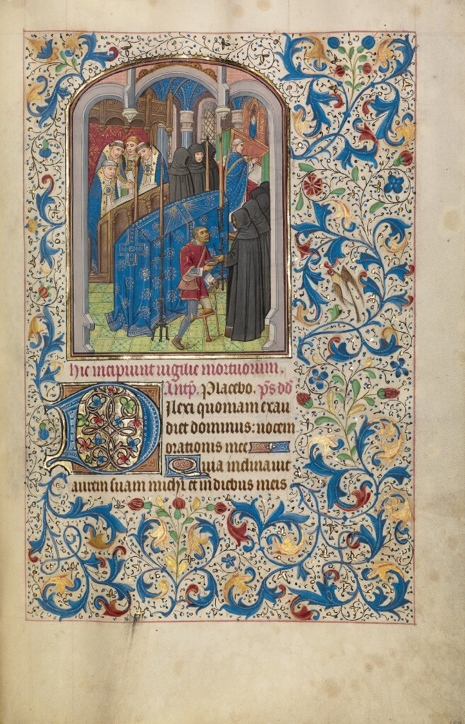 Hic incipiunt vigilie mortuorum.
Antp̄. Placebo. p̄s dd
Dilexi quoniam exau
diet dominus: uocem
orationis mee
Quia inclinauit
aurem suam michi et in diebus meis